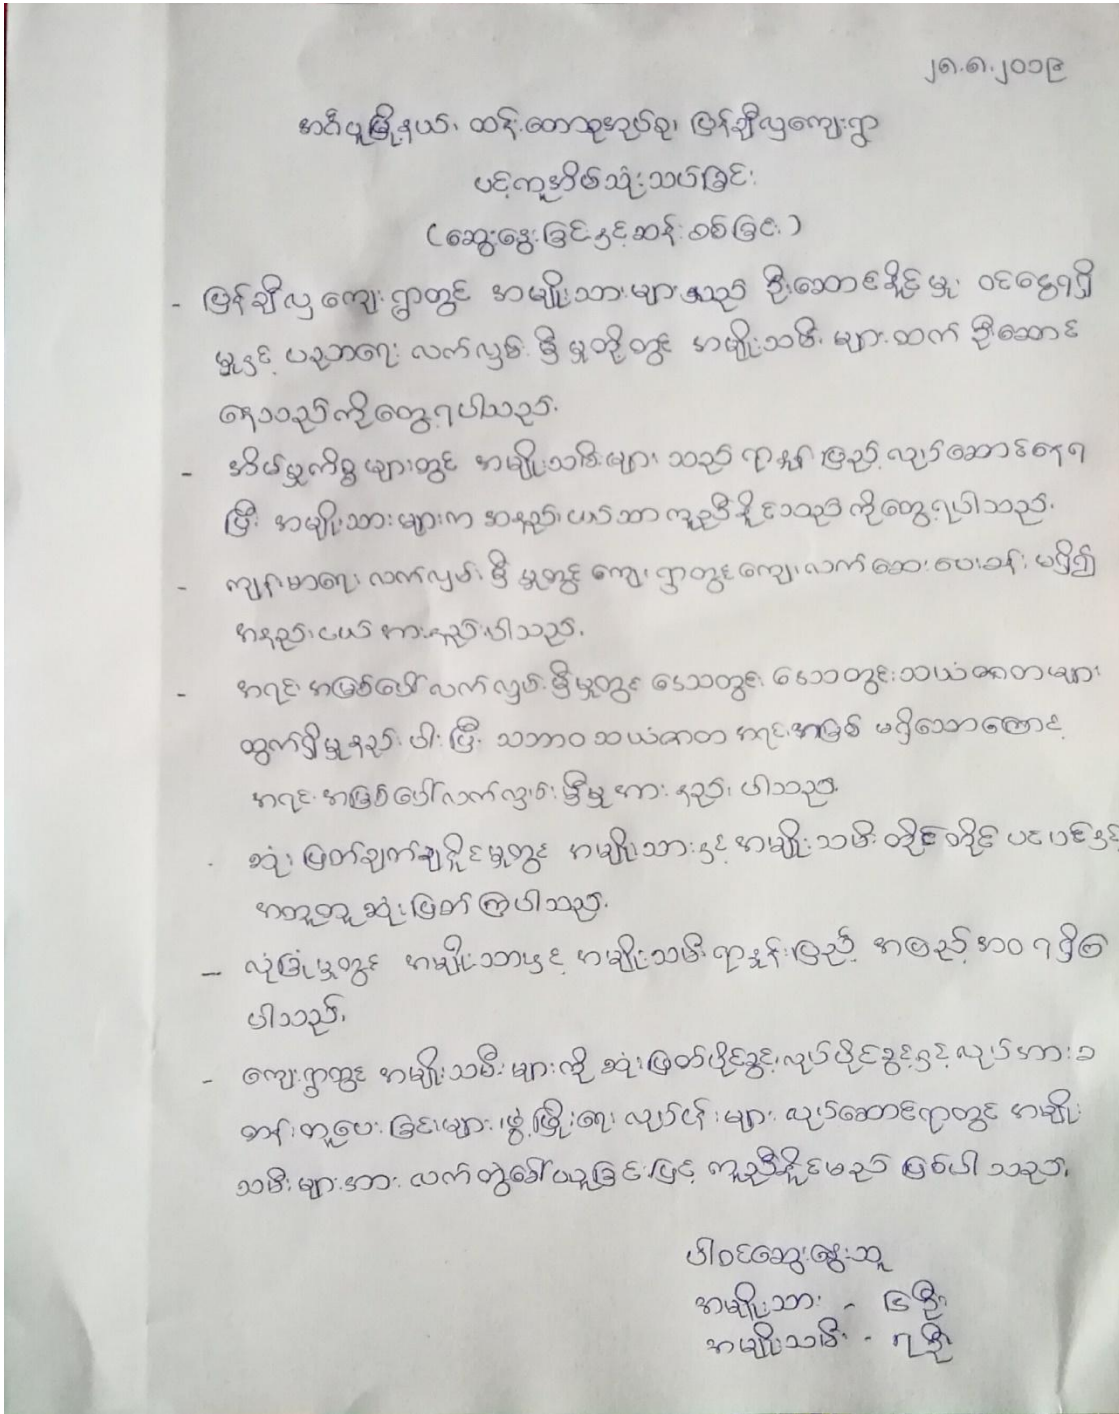 ၂၈.၈.၂၀၁၉
အင်္ဂပူမြို့နယ်၊ ထန်းတောသုအုပ်စု၊ မြန်ချီလှကျေးရွာ
ပင့်ကူအိမ်သုံးသပ်ခြင်း
(ဆွေးနွေးခြင်းနှင့်ဆန်းစစ်ခြင်း)
- မြန်ချီလှ ကျေးရွာတွင် အမျိုးသားများသည် ဦးဆောင်နိုင်မှု၊ ဝင်ငွေရရှိ
မှုနှင့် ပညာရေး လက်လှမ်းမှီမှုတို့တွင် အမျိုးသမီးများထက် ဦးဆောင်
နေသည်ကိုတွေ့ရပါသည်။
- အိမ်မှုကိစ္စများတွင် အမျိုးသမီးများ သည် ရာနှုန်းပြည့် လုပ်ဆောင်နေရ
ပြီး အမျိုးသားများက အနည်းငယ်သာ ကူညီနိုင်သည်ကိုတွေ့ရပါသည်။
- ကျန်းမာရေး လက်လှမ်းမှီမှုတွင် ကျေးရွာတွင်ကျေးလက်ဆေးပေးခန်း မရှိ၍
အနည်းငယ် အားနည်းပါသည်။
- အရင်းအမြစ်ပေါ်လက်လှမ်းမှီမှုတွင် ဒေသတွင်း ဒေသတွင်းသယံဇာတများ
ထွက်ရှိမှုနည်းပါးပြီး သဘာဝ သယံဇာတ အရင်းအမြစ် မရှိသောကြောင့်
အရင်းအမြစ်ပေါ်လက်လှမ်းမှီမှု အားနည်းပါသည်။
- ဆုံးဖြတ်ချက်ချနိုင်မှုတွင် အမျိုးသားနှင့် အမျိုးသမီး တိုင်တိုင်ပင်ပင်နှင့်
အတူတူ ဆုံးဖြတ်ကြပါသည်။
- လုံခြုံမှုတွင် အမျိုးသားနှင့် အမျိုးသမီး ရာနှုန်းပြည့် အပြည့်အဝ ရရှိကြ
ပါသည်။
- ကျေးရွာတွင် အမျိုးသမီးများကို ဆုံးဖြတ်ပိုင်ခွင့်၊ လုပ်ပိုင်ခွင့်နှင့် လုပ်အားခ
တန်းတူပေးခြင်းများ၊ ဖွံ့ဖြိုးရေး လုပ်ငန်းများ လုပ်ဆောင်ရာတွင် အမျိုး
သမီးများအား လက်တွဲခေါ်ယူခြင်းဖြင့် ကူညီနိုင်မည် ဖြစ်ပါသည်။
ပါဝင်ဆွေးနွေးသူ
အမျိုးသား - ၆ဦး
အမျိုးသမီး - ၇ဦး